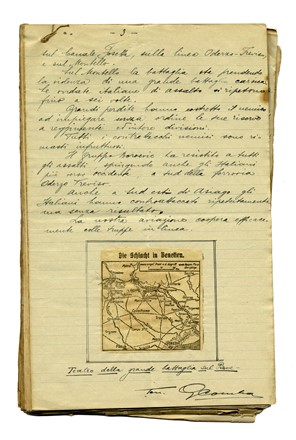 - 3 -
sul Canale, Fosetta, sulla linea Oderzo-Treviso
e sul Montello.
Sul Montello la battaglia sta prendendo
la violenza di una grande battaglia campale
le ondate italiane di assalto si ripetono
fino a sei volte.
Grandi perdite hanno costretto il nemico
ad impiegare senza ordine le sue riserve
a reggimenti ed intere divisioni.
Tutti i contrattacchi nemici sono ri-
masti infruttuosi.
Gruppo Boroevic ha resistito a tutti
gli assalti spingendo anche gli Italiani
più verso occidente a sud della ferrovia
Oderzo Treviso.
Anche a sud est di Asiago gli
Italiani hanno contrattaccato ripetutamente
ma senza risultato.
La nostra aviazione coopera efficace-
mente colle truppe in linea.
Die Schlacht in Venetien.
Teatro della grande battaglia sul Piave.